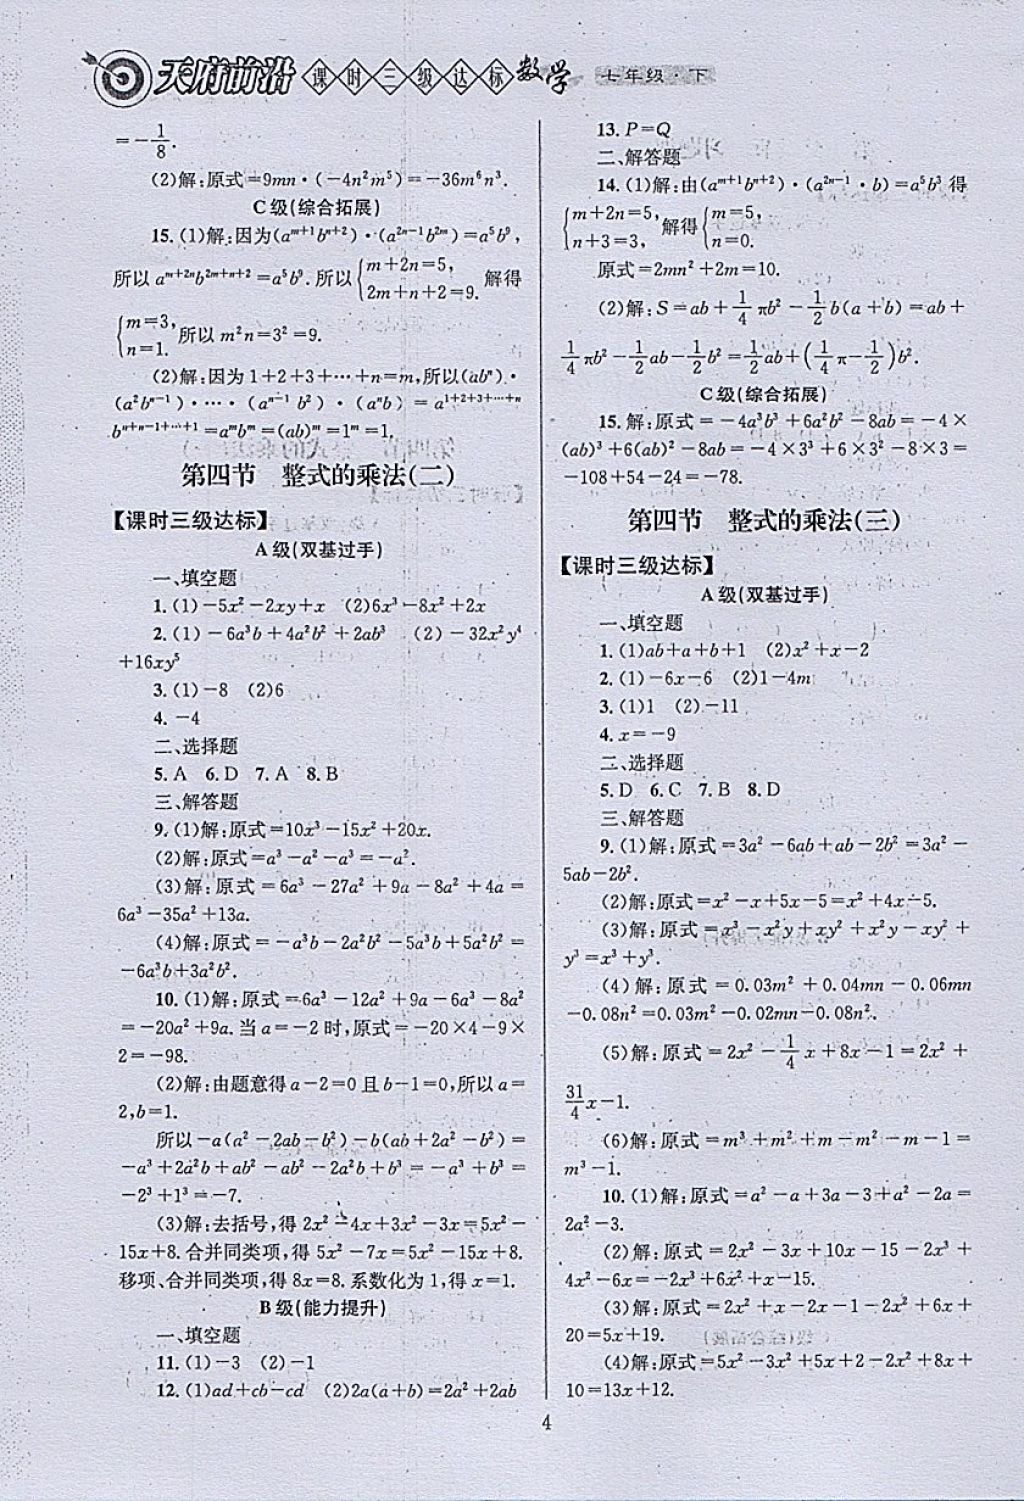 天府前沿 课时三级达标 数学 七年级·下
=-1/8.
(2)解:原式=9mn·(-4n²m⁵)=-36m⁶n³.
C级(综合拓展)
15.(1)解:因为(aᵐ⁺¹bⁿ⁺²)·(a²ⁿ⁻¹b²ᵐ)=a⁵b⁹,
所以aᵐ⁺²ⁿb²ᵐ⁺ⁿ⁺²=a⁵b⁹.所以{m+2n=5, 2m+n+2=9. 解得
{m=3, n=1. 所以m²n=3²=9.
(2)解:因为1+2+3+…+n=m,所以(abⁿ)·
(a²bⁿ⁻¹)·…·(aⁿ⁻¹b²)·(aⁿb)=a¹⁺²⁺³⁺…⁺ⁿ
bⁿ⁺ⁿ⁻¹⁺…⁺¹=aᵐbᵐ=(ab)ᵐ=1ᵐ=1.
第四节 整式的乘法(二)
【课时三级达标】
A级(双基过手)
一、填空题
1.(1)-5x²-2xy+x (2)6x³-8x²+2x
2.(1)-6a³b+4a²b²+2ab³ (2)-32x²y⁴
+16xy⁵
3.(1)-8 (2)6
4.-4
二、选择题
5.A 6.D 7.A 8.B
三、解答题
9.(1)解:原式=10x³-15x²+20x.
(2)解:原式=a³-a²-a³=-a².
(3)解:原式=6a³-27a²+9a-8a²+4a=
6a³-35a²+13a.
(4)解:原式=-a³b-2a²b²-5a³b+5a²b²=
-6a³b+3a²b².
10.(1)解:原式=6a³-12a²+9a-6a³-8a²
=-20a²+9a.当a=-2时,原式=-20×4-9×
2=-98.
(2)解:由题意得a-2=0且b-1=0,所以a=
2,b=1.
所以-a(a²-2ab-b²)-b(ab+2a²-b²)=
-a³+2a²b+ab²-ab²-2a²b+b³=-a³+b³=
-2³+1³=-7.
(3)解:去括号,得2x²-4x+3x²-3x=5x²-
15x+8.合并同类项,得5x²-7x=5x²-15x+8.
移项、合并同类项,得8x=8.系数化为1,得x=1.
B级(能力提升)
一、填空题
11.(1)-3 (2)-1
12.(1)ad+cb-cd (2)2a(a+b)=2a²+2ab
13.P=Q
二、解答题
14.(1)解:由(aᵐ⁺¹bⁿ⁺²)·(a²ⁿ⁻¹·b)=a⁵b³得
{m+2n=5, n+3=3, 解得{m=5, n=0.
原式=2mn²+2m=10.
(2)解:S=ab+1/4πb²-1/2b(a+b)=ab+
1/4πb²-1/2ab-1/2b²=1/2ab+(1/4π-1/2)b².
C级(综合拓展)
15.解:原式=-4a³b³+6a²b²-8ab=-4×
(ab)³+6(ab)²-8ab=-4×3³+6×3²-8×3=
-108+54-24=-78.
第四节 整式的乘法(三)
【课时三级达标】
A级(双基过手)
一、填空题
1.(1)ab+a+b+1 (2)x²+x-2
2.(1)-6x-6 (2)1-4m
3.(1)1 (2)-11
4.x=-9
二、选择题
5.D 6.C 7.B 8.D
三、解答题
9.(1)解:原式=3a²-6ab+ab-2b²=3a²-
5ab-2b².
(2)解:原式=x²-x+5x-5=x²+4x-5.
(3)解:原式=x³-x²y+xy²+x²y-xy²+
y³=x³+y³.
(4)解:原式=0.03m²+0.04mn-0.06mn
-0.08n²=0.03m²-0.02mn-0.08n².
(5)解:原式=2x²-1/4x+8x-1=2x²+
31/4x-1.
(6)解:原式=m³+m²+m-m²-m-1=
m³-1.
10.(1)解:原式=a²-a+3a-3+a²-2a=
2a²-3.
(2)解:原式=2x²-3x+10x-15-2x³+
4x²-6x=-2x³+6x²+x-15.
(3)解:原式=2x²+x-2x-1-2x²+6x+
20=5x+19.
(4)解:原式=5x²-3x²+5x+2-2x²+8x+
10=13x+12.
4